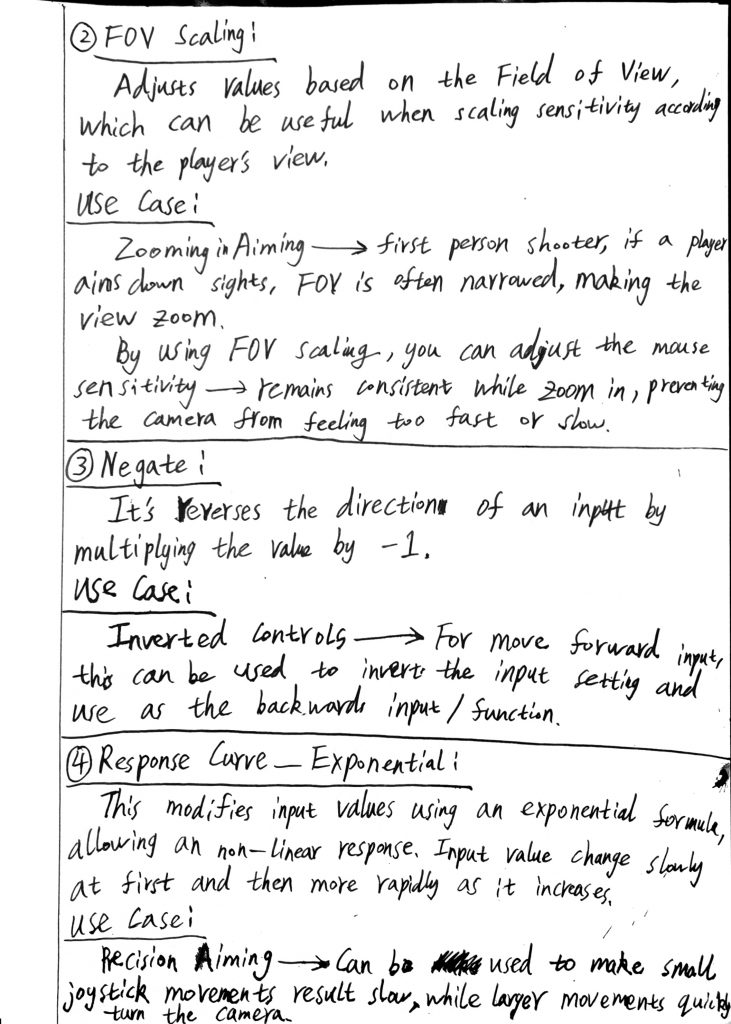 ② FOV Scaling:
Adjusts values based on the Field of View,
which can be useful when scaling sensitivity according
to the player's view.
Use Case:
Zooming in Aiming → first person shooter, if a player
aims down sights, FOV is often narrowed, making the
view zoom.
By using FOV scaling, you can adjust the mouse
sensitivity → remains consistent while zoom in, preventing
the camera from feeling too fast or slow.
③ Negate:
It's reverses the direction of an input by
multiplying the value by -1.
Use Case:
Inverted Controls → For move forward input,
this can be used to invert the input setting and
use as the backwards input / function.
④ Response Curve - Exponential:
This modifies input values using an exponential formula,
allowing an non-linear response. Input value change slowly
at first and then more rapidly as it increases.
Use Case:
Precision Aiming → Can be used to make small
joystick movements result slow, while larger movements quickly
turn the camera.